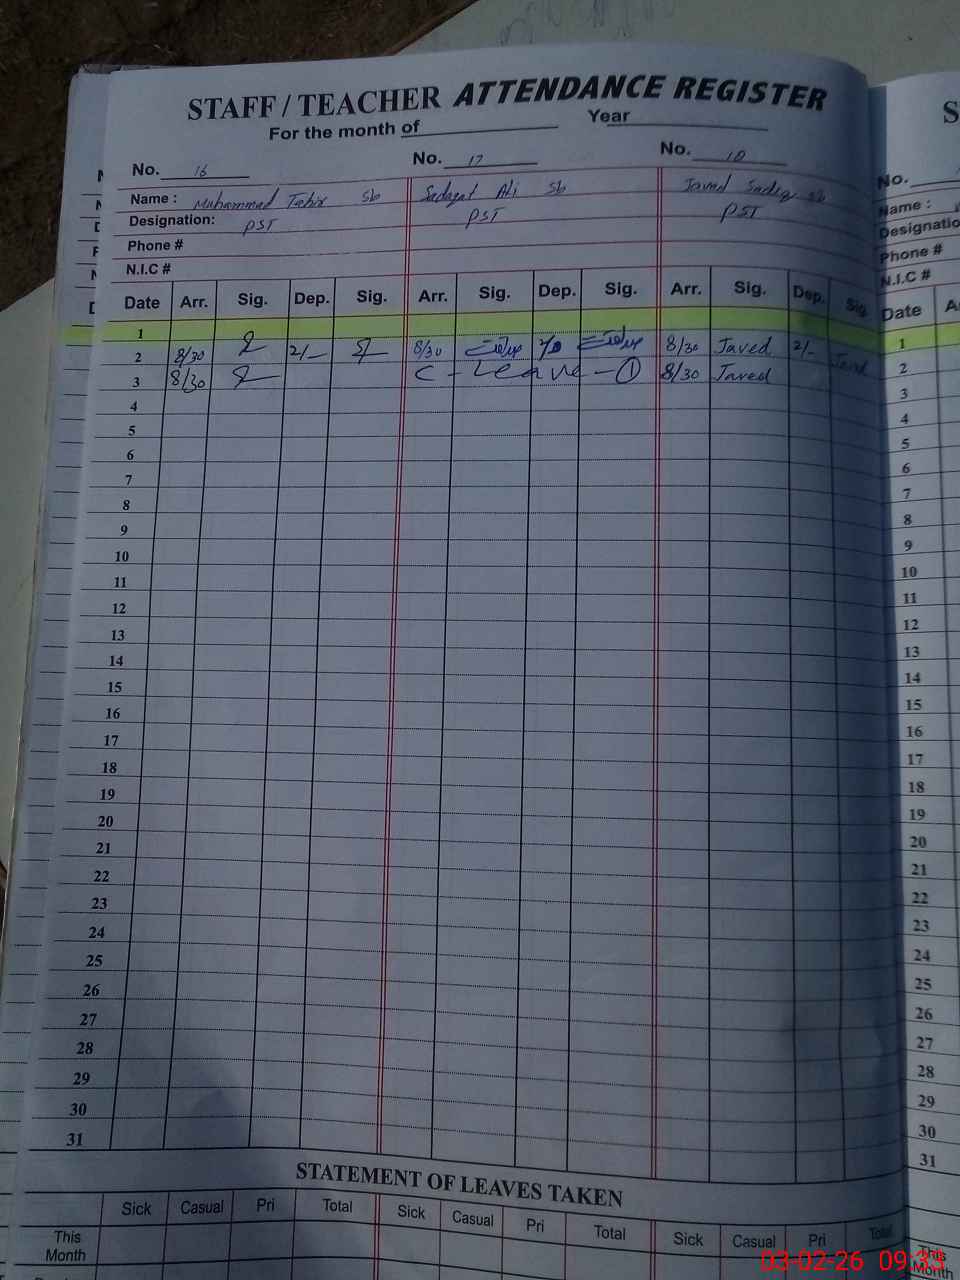 STAFF / TEACHER ATTENDANCE REGISTER
For the month of Year
No. 16 No. 17 No. 18
Name : Muhammad Tahir Sb Sadaqat Ali Sb Javed Sadiq Sb
Designation: PST PST PST
Phone #
N.I.C #
Date Arr. Sig. Dep. Sig. Arr. Sig. Dep. Sig. Arr. Sig. Dep. Sig.
1
2 8/30 2/- 8/30 صداقت صداقت 8/30 Javed 2/- Javed
3 8/30 C - Leave - 1 8/30 Javed
4
5
6
7
8
9
10
11
12
13
14
15
16
17
18
19
20
21
22
23
24
25
26
27
28
29
30
31
STATEMENT OF LEAVES TAKEN
Sick Casual Pri Total Sick Casual Pri Total Sick Casual Pri Total
This Month
S
No.
Name :
Designatio
Phone #
N.I.C #
Date A
1
2
3
4
5
6
7
8
9
10
11
12
13
14
15
16
17
18
19
20
21
22
23
24
25
26
27
28
29
30
31
This Month
03-02-26 09:33